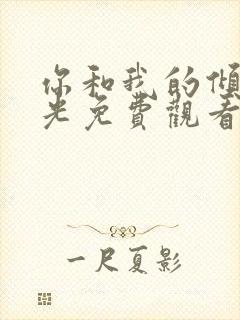 你和我的傾
光免費觀看
一尺夏影